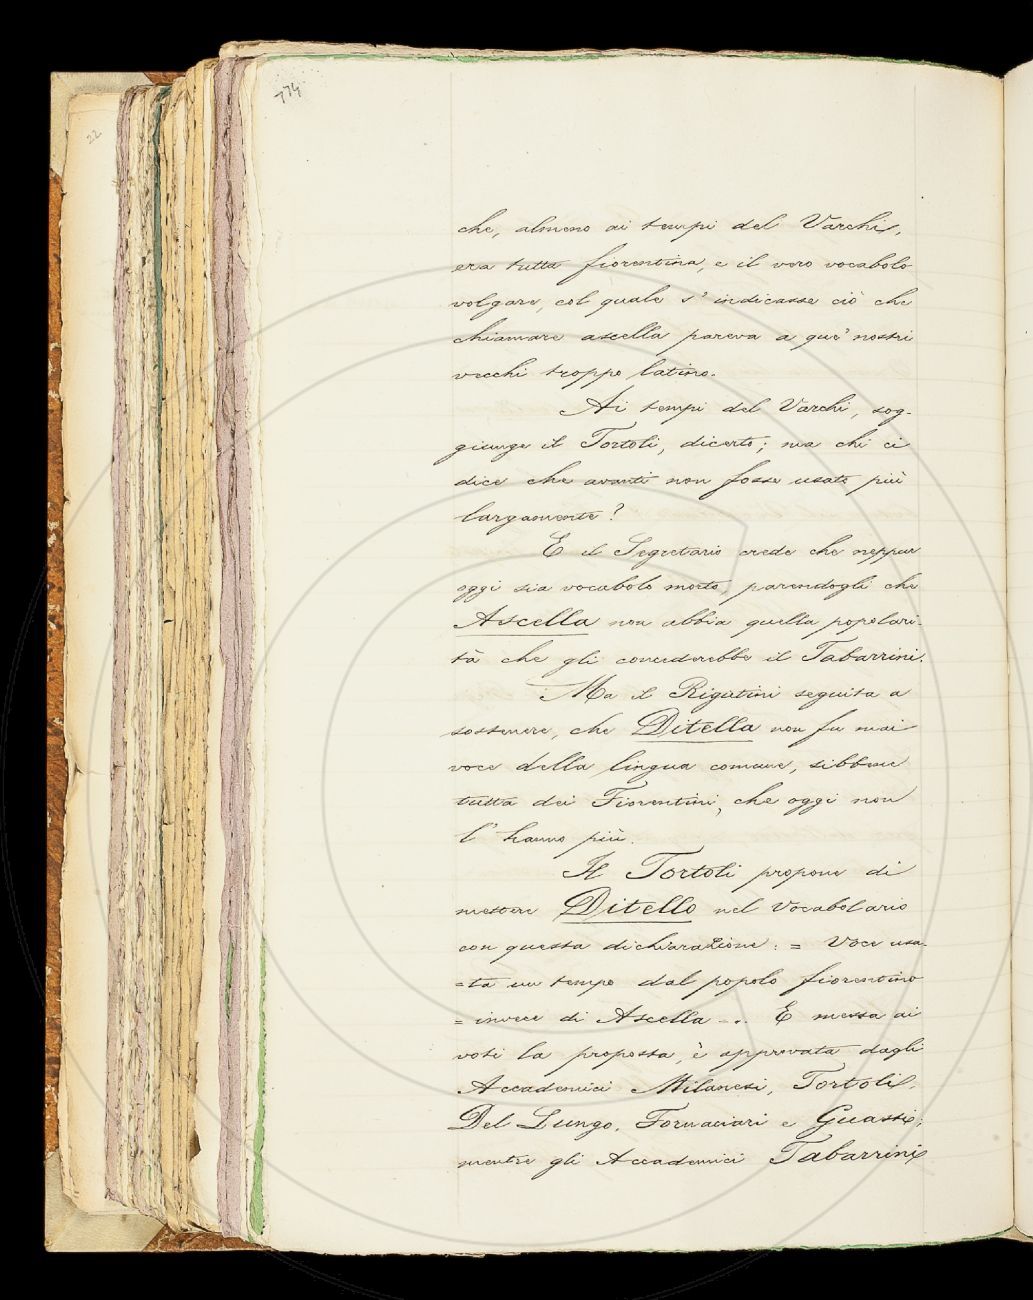 774
22
che, almeno ai tempi del Varchi,
era tutta fiorentina, e il vero vocabolo
volgare, col quale s'indicasse ciò che
chiamare ascella pareva a que' nostri
vecchi troppo latino.
Ai tempi del Varchi, sog-
giunge il Tortoli, dicerto; ma chi ci
dice che avanti non fosse usato più
largamente?
E il Segretario crede che neppur
oggi sia vocabolo morto, parendogli che
Ascella non abbia quella popolari-
tà che gli concederebbe il Tabarrini.
Ma il Rigutini seguita a
sostenere, che Ditella non fu mai
voce della lingua comune, sibbene
tutta dei Fiorentini, che oggi non
l'hanno più.
Il Tortoli propone di
mettere Ditello nel Vocabolario
con questa dichiarazione: = Voce usa-
=ta un tempo dal popolo fiorentino
= invece di Ascella -.. E messa ai
voti la proposta, è approvata dagli
Accademici Milanesi, Tortoli,
Del Lungo, Fornaciari e Guasti;
mentre gli Accademici Tabarrini